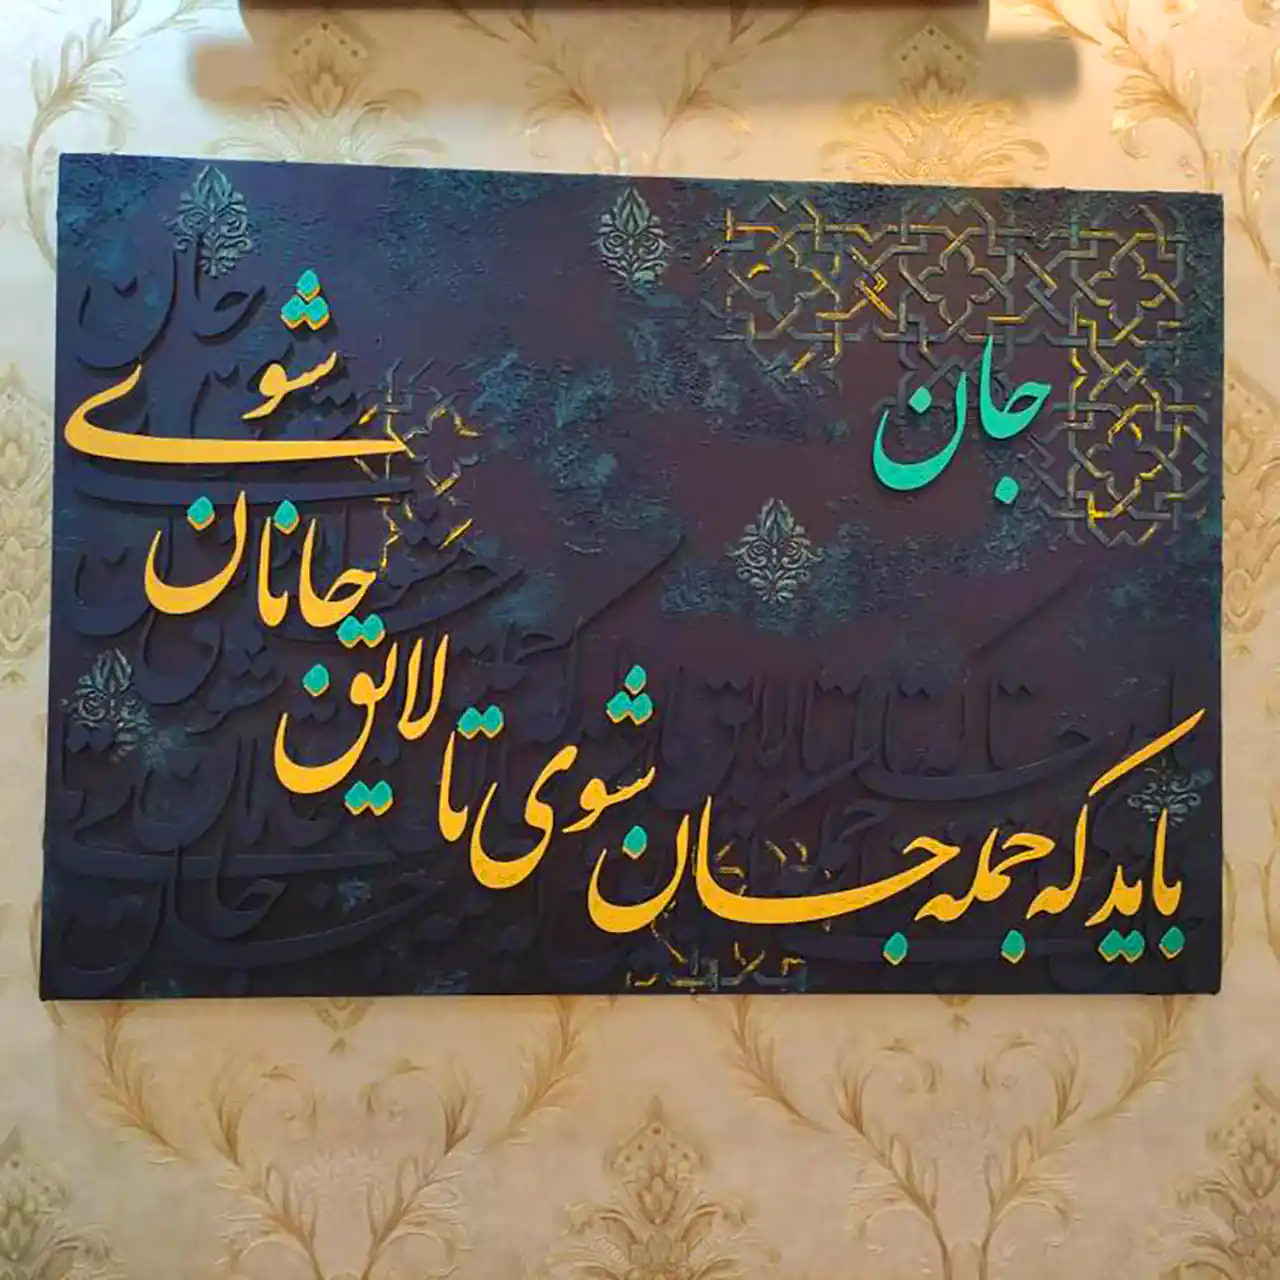 جان
باید که جمله جان شوی تا لایق جانان شوی